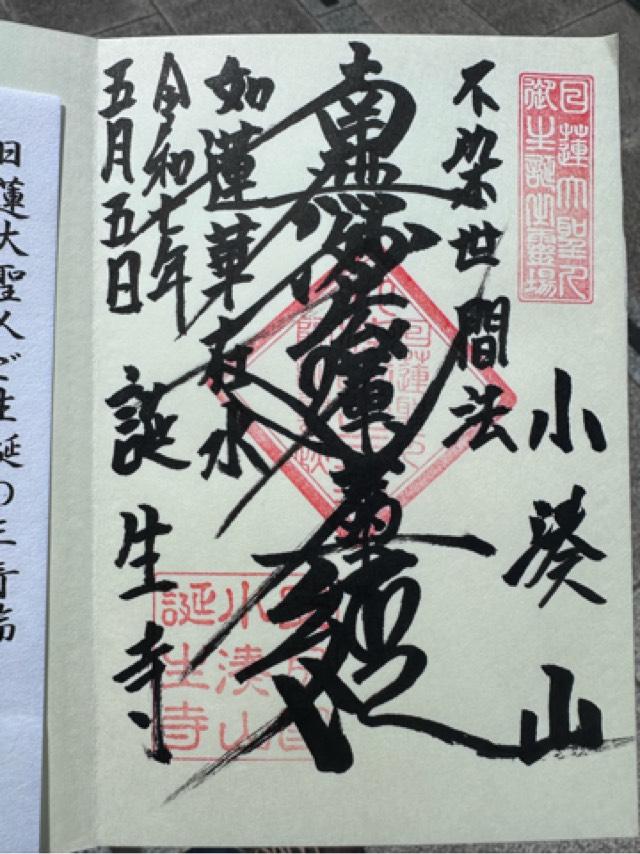 日蓮大聖人
御生誕之靈場
小湊山
不染世間法
南無妙法蓮華經
如蓮華在水
令和七年
五月五日
誕生寺
小湊山
誕生寺
日蓮大聖人ご生誕の三奇瑞